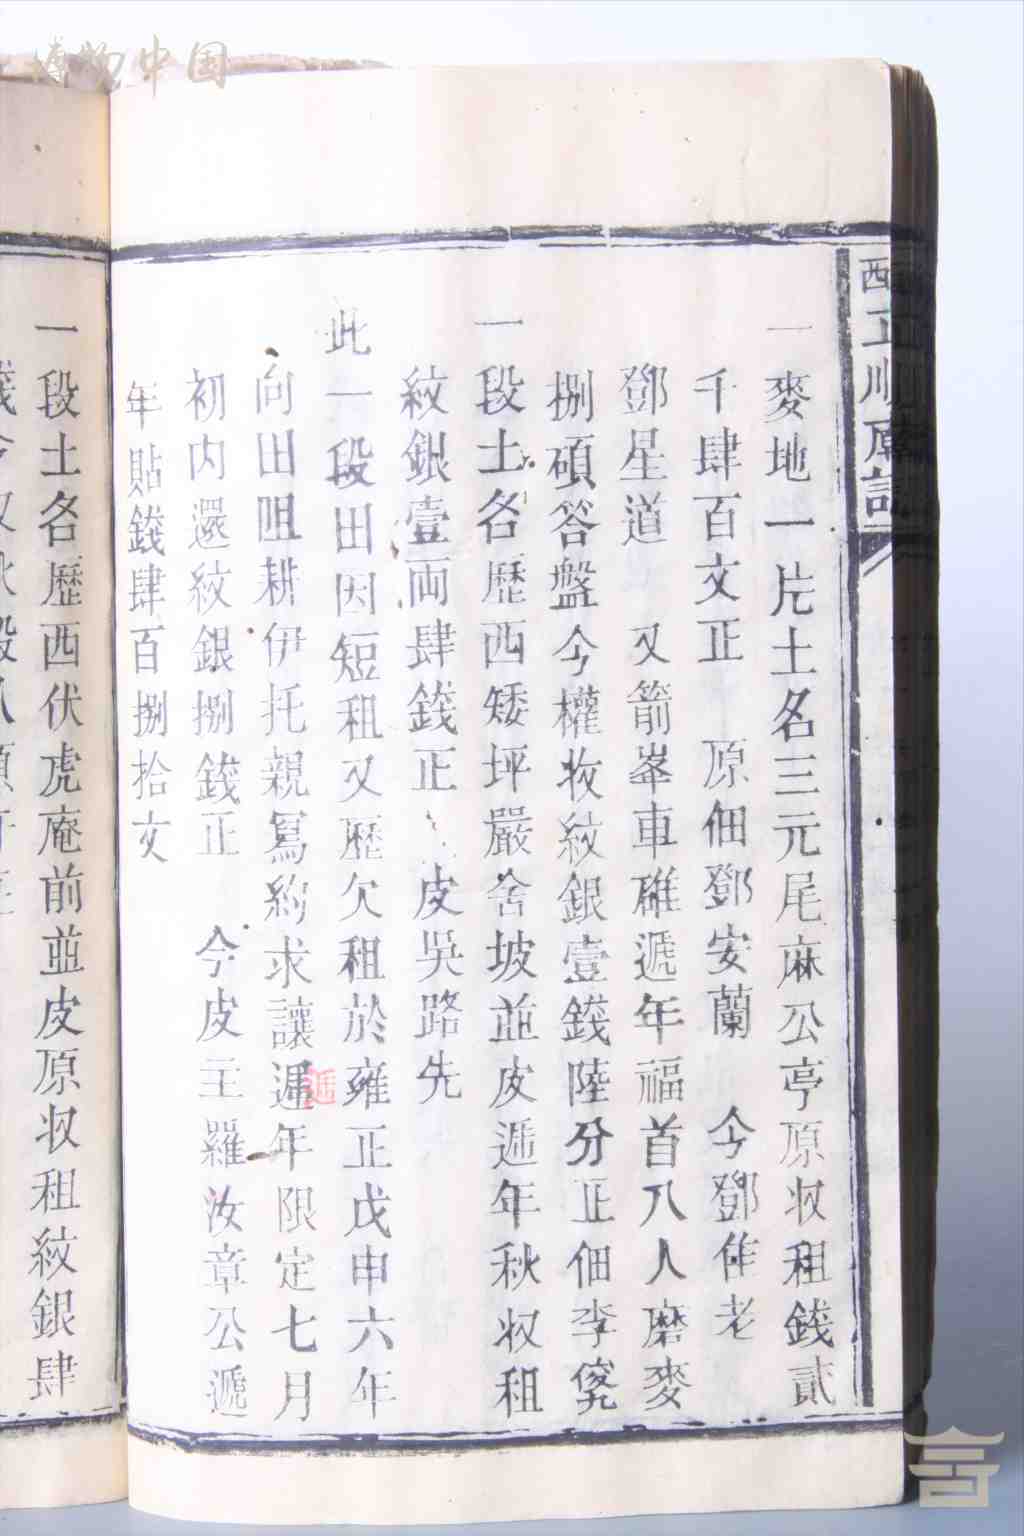 博物中国
一麥地一片土名三元尾麻公亭原收租錢貳
千肆百文正 原佃鄧安蘭 今鄧隹老
鄧星道 又箭峯車碓遞年福首八人磨麥
捌碩答盤今權收紋銀壹錢陸分正佃李
一段土各歷西矮坪嚴舍坡並皮遞年秋收租
紋銀壹両肆錢正 皮吳路先
此一段田因短租又歷欠租於雍正戊申六年
向田咀耕伊托親冩約求讓遞年限定七月
遞
初内還紋銀捌錢正 今皮主羅汝章公遞
年貼錢肆百捌拾文
一段土名歷西伏虎庵前並皮原收租紋銀肆